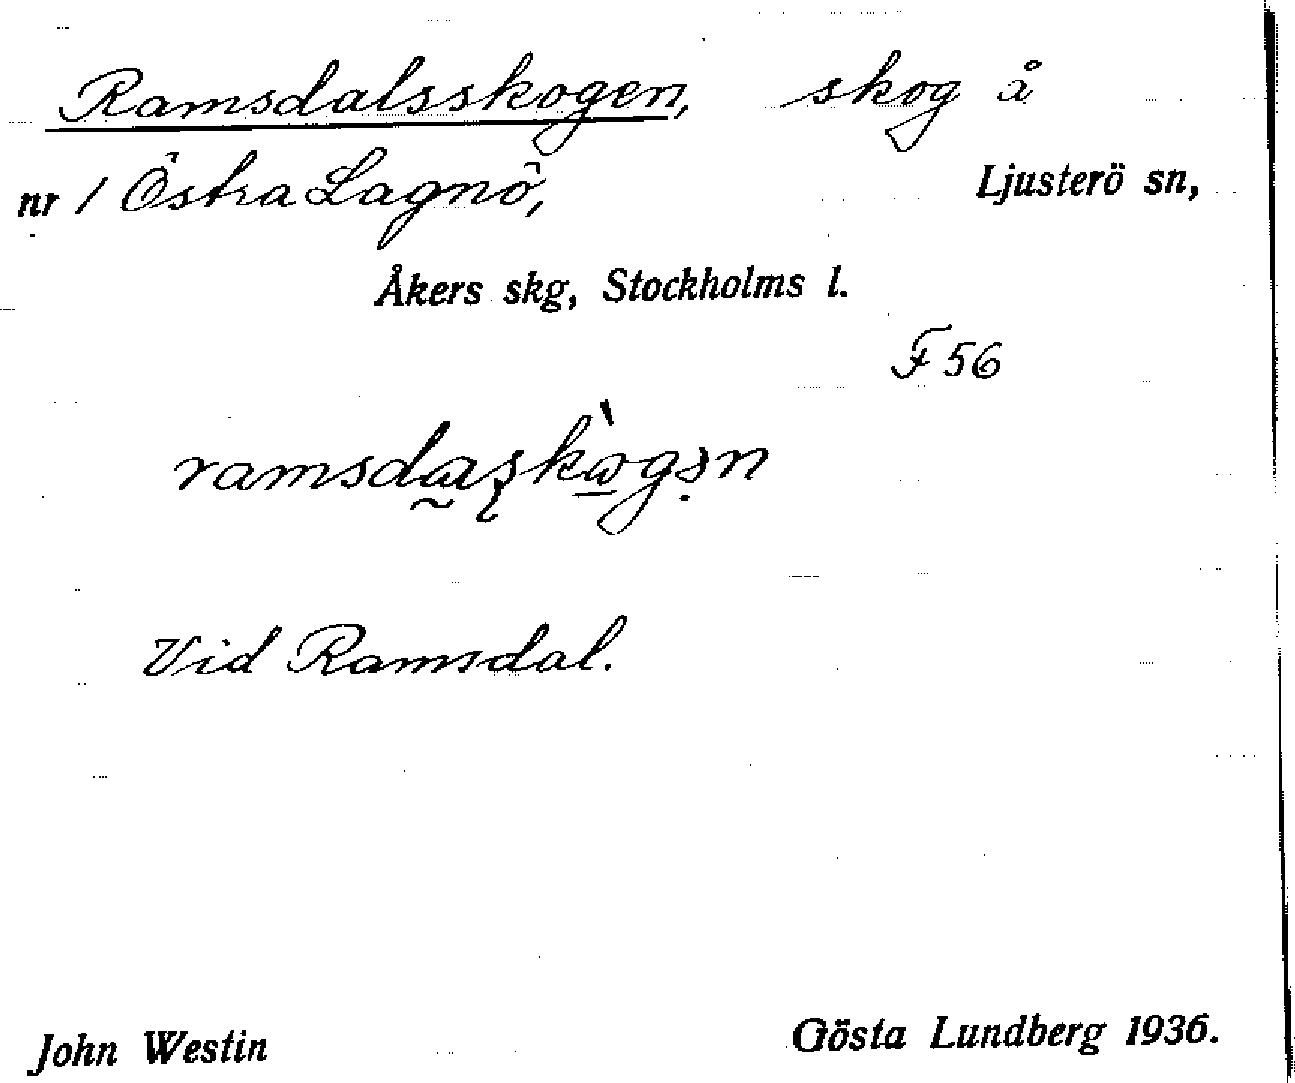 Ramsdalsskogen, skog å
nr 1 Östra Lagnö, Ljusterö sn,
Åkers skg, Stockholms l.
F 56
Vid Ramsdal.
John Westin Gösta Lundberg 1936.